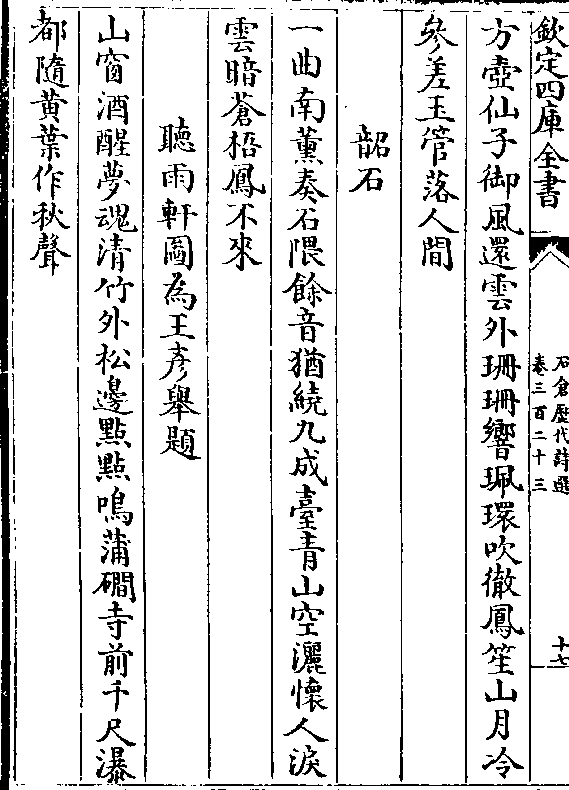 欽定四庫全書
石倉歷代詩選
卷三百二十三
十七
方壺仙子御風還雲外珊珊響珮環吹徹鳳笙山月冷
參差玉管落人間
韶石
一曲南薰奏石隈餘音猶繞九成臺青山空灑懷人淚
雲暗蒼梧鳳不來
聽雨軒圖為王彥舉題
山窗酒醒夢魂清竹外松邊點點鳴蒲磵寺前千尺瀑
都隨黄葉作秋聲